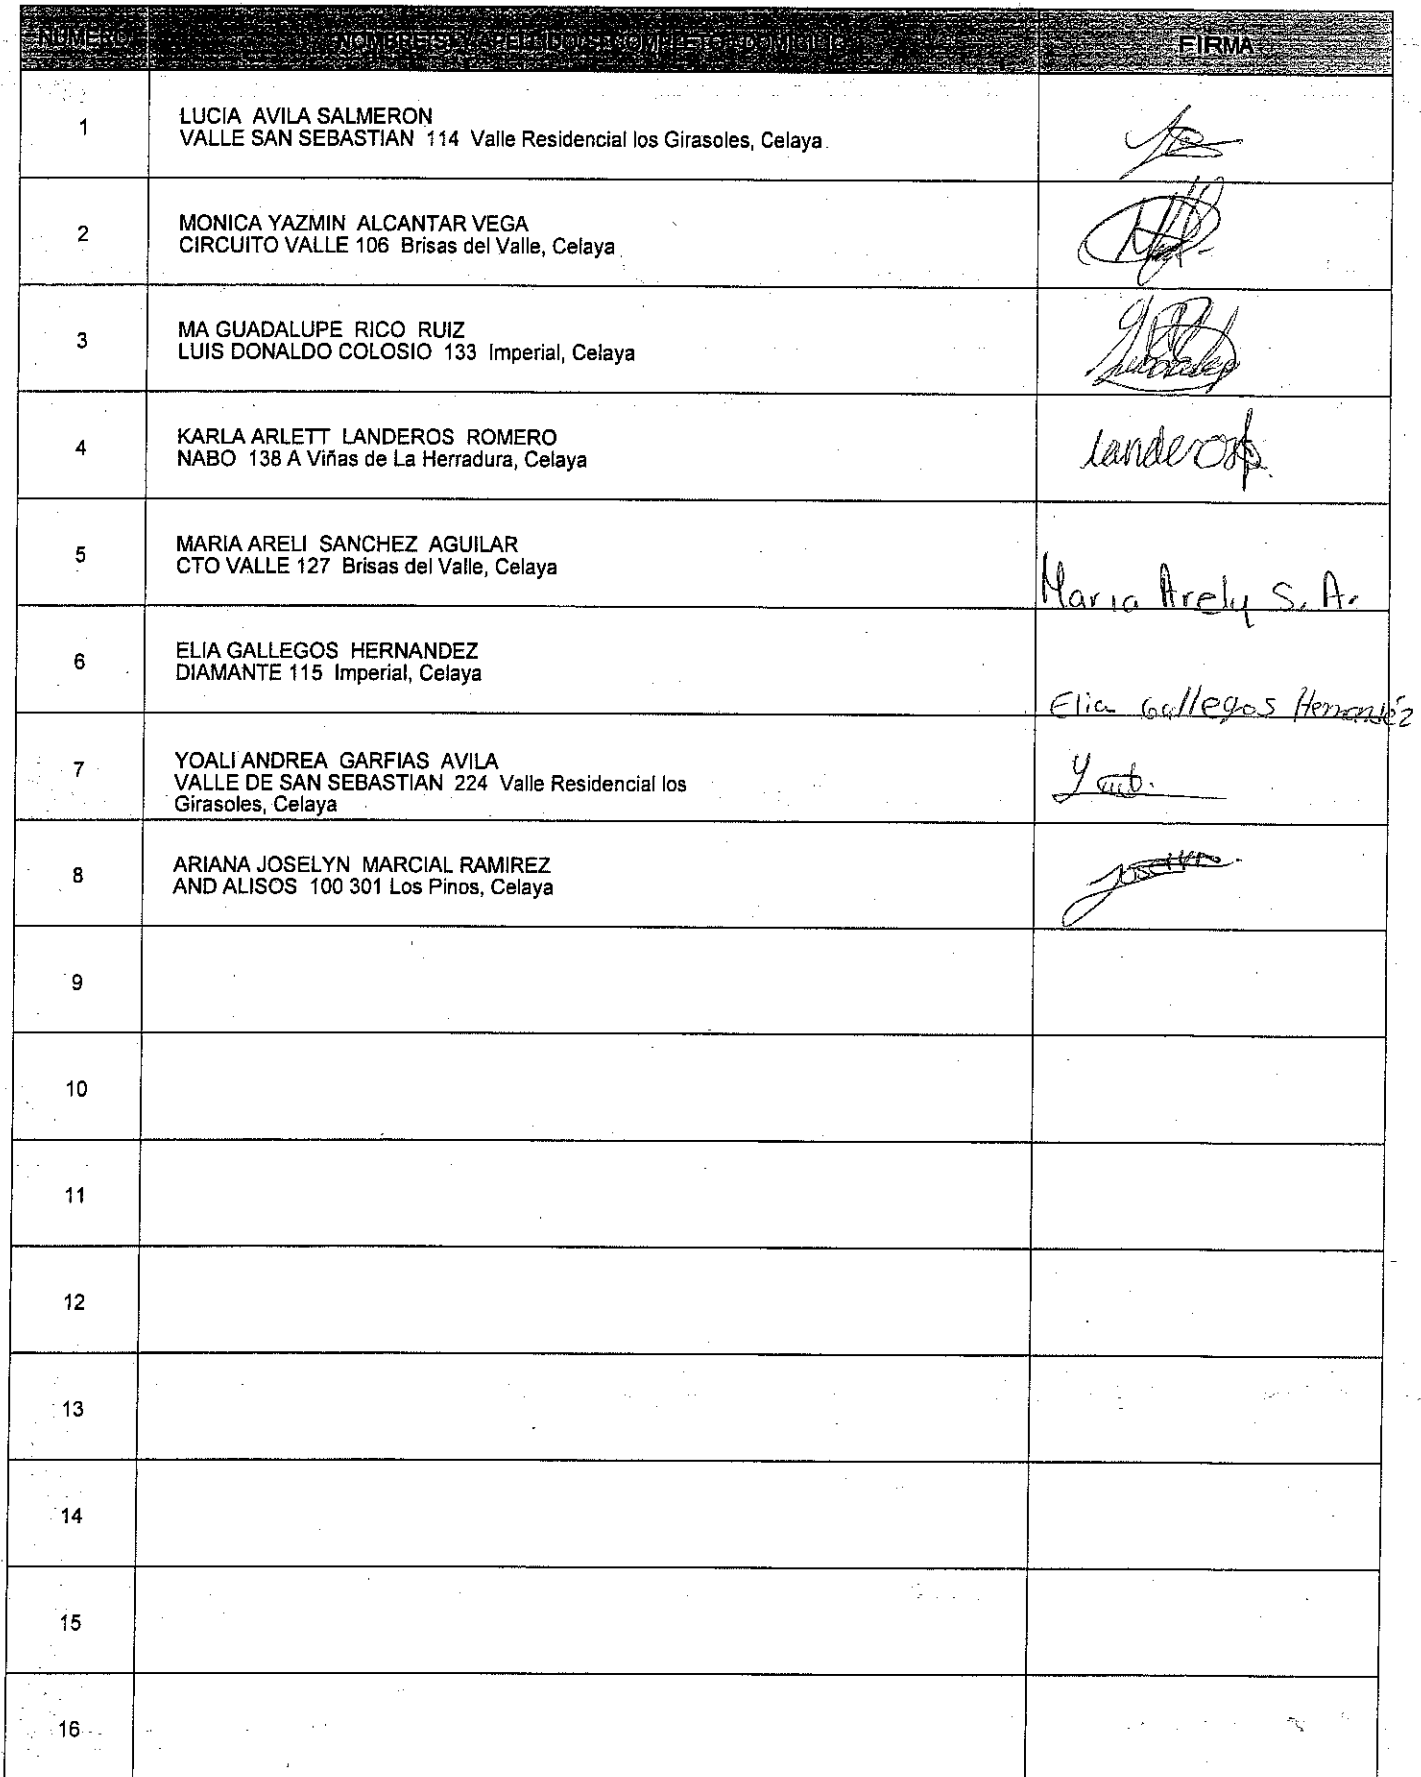 NUMERO NOMBRE(S) Y APELLIDO(S) COMPLETO Y DOMICILIO FIRMA
1
LUCIA AVILA SALMERON
VALLE SAN SEBASTIAN 114 Valle Residencial los Girasoles, Celaya
2
MONICA YAZMIN ALCANTAR VEGA
CIRCUITO VALLE 106 Brisas del Valle, Celaya
3
MA GUADALUPE RICO RUIZ
LUIS DONALDO COLOSIO 133 Imperial, Celaya
4
KARLA ARLETT LANDEROS ROMERO
NABO 138 A Viñas de La Herradura, Celaya
Landeros
5
MARIA ARELI SANCHEZ AGUILAR
CTO VALLE 127 Brisas del Valle, Celaya
Maria Arely S. A.
6
ELIA GALLEGOS HERNANDEZ
DIAMANTE 115 Imperial, Celaya
Elia Gallegos Hernandéz
7
YOALI ANDREA GARFIAS AVILA
VALLE DE SAN SEBASTIAN 224 Valle Residencial los
Girasoles, Celaya
8
ARIANA JOSELYN MARCIAL RAMIREZ
AND ALISOS 100 301 Los Pinos, Celaya
9
10
11
12
13
14
15
16